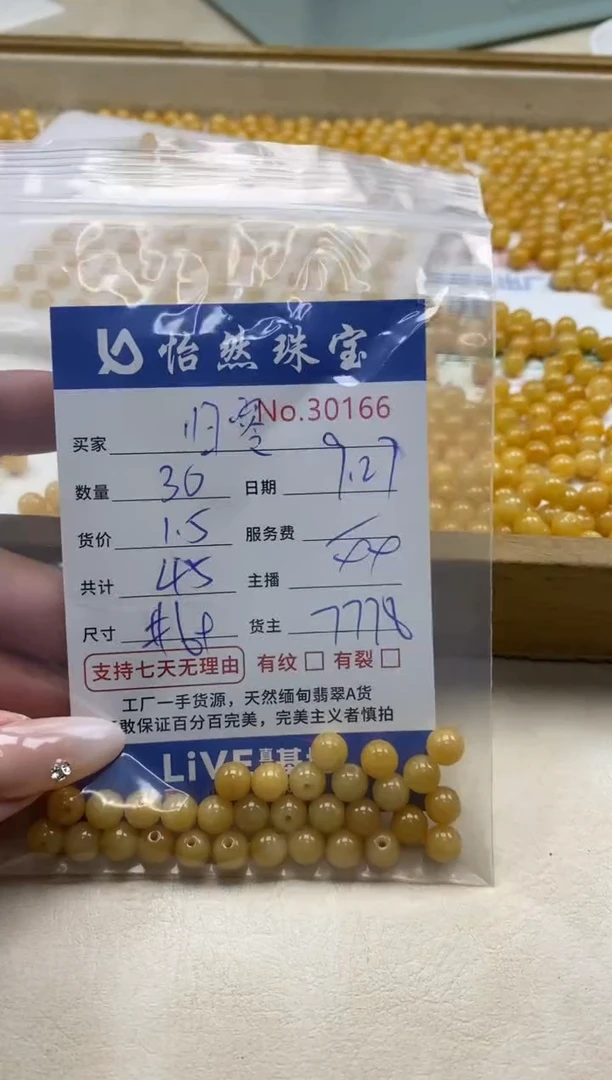 怡然珠宝
No.30166
买家 归零
数量 30 日期 9.27
货价 1.5 服务费
共计 45 主播
尺寸 货主 7778
支持七天无理由 有纹 □ 有裂 □
工厂一手货源，天然缅甸翡翠A货
敢保证百分百完美，完美主义者慎拍
LiVE